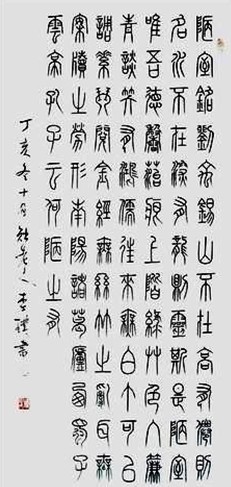 陋室銘劉禹錫山不在高有僊則
名水不在深有龍則靈斯是陋室
唯吾德馨苔痕上階綠艸色入簾
青談笑有鴻儒往來無白丁可以
調素琴閱金經無絲竹之亂耳無
案牘之勞形南陽諸葛廬西蜀子
雲亭孔子云何陋之有
丁亥冬十月老人李書